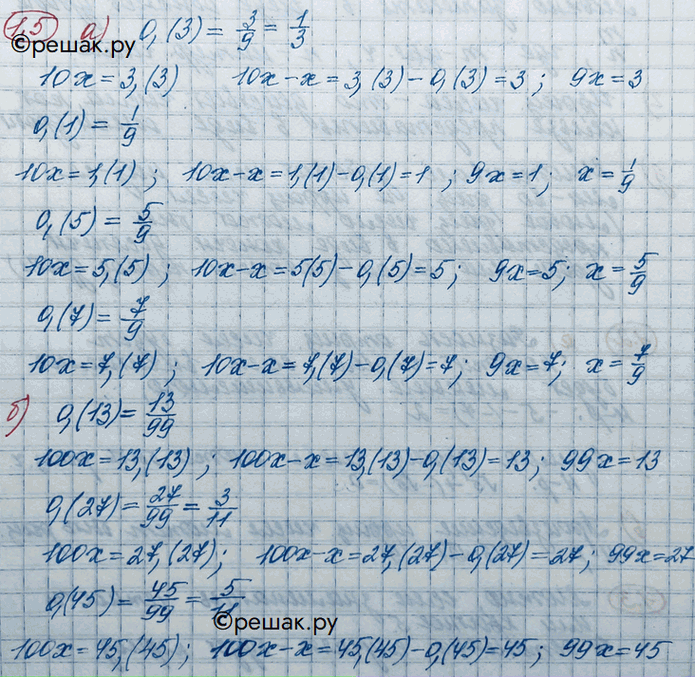 15 а) 0,(3) = 3/9 = 1/3
©решак.ру
10x = 3,(3) 10x-x = 3,(3) - 0,(3) = 3 ; 9x = 3
0,(1) = 1/9
10x = 1,(1) ; 10x-x = 1,(1) - 0,(1) = 1 ; 9x = 1 ; x = 1/9
0,(5) = 5/9
10x = 5,(5) ; 10x-x = 5(5) - 0,(5) = 5 ; 9x = 5 ; x = 5/9
0,(7) = 7/9
10x = 7,(7) ; 10x-x = 7,(7) - 0,(7) = 7 ; 9x = 7 ; x = 7/9
б) 0,(13) = 13/99
100x = 13,(13) ; 100x-x = 13,(13) - 0,(13) = 13 ; 99x = 13
0,(27) = 27/99 = 3/11
100x = 27,(27) ; 100x-x = 27,(27) - 0,(27) = 27 ; 99x = 27
0,(45) = 45/99 = 5/11
©решак.ру
100x = 45,(45) ; 100x-x = 45,(45) - 0,(45) = 45 ; 99x = 45